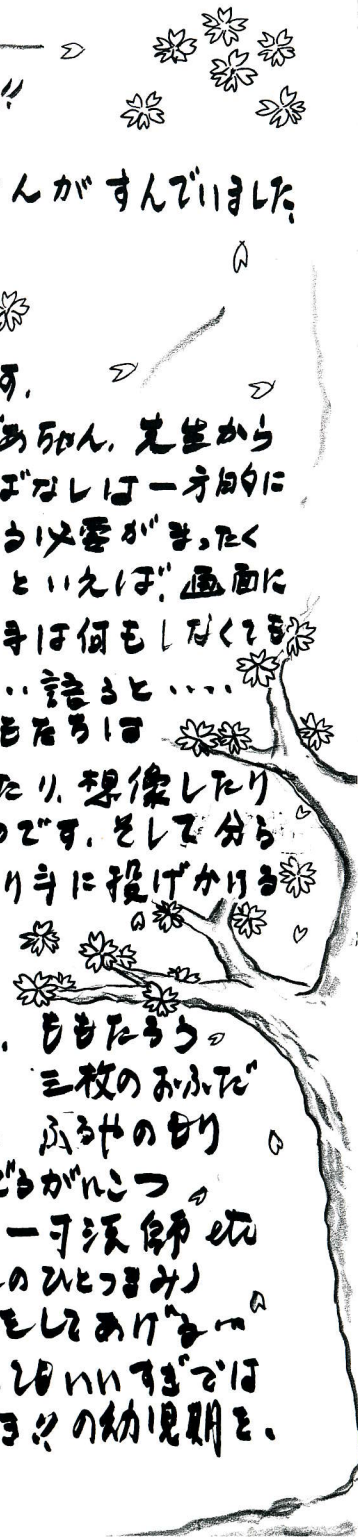 !!
んが すんでいました。
す。
あちゃん、先生から
ばなしは一方的に
る必要がまったく
といえば、画面に
手は何もしなくても
‥語ると‥‥
もたちは
たり、想像したり
のです。そして分ら
り手に投げかける
、ももたろう
三枚のおふだ
ふるやのもり
どるがいこつ
一寸法師 etc
のひとつまみ)
をしてあげる〃
てもいいすぎでは
ま!!の幼児期を。